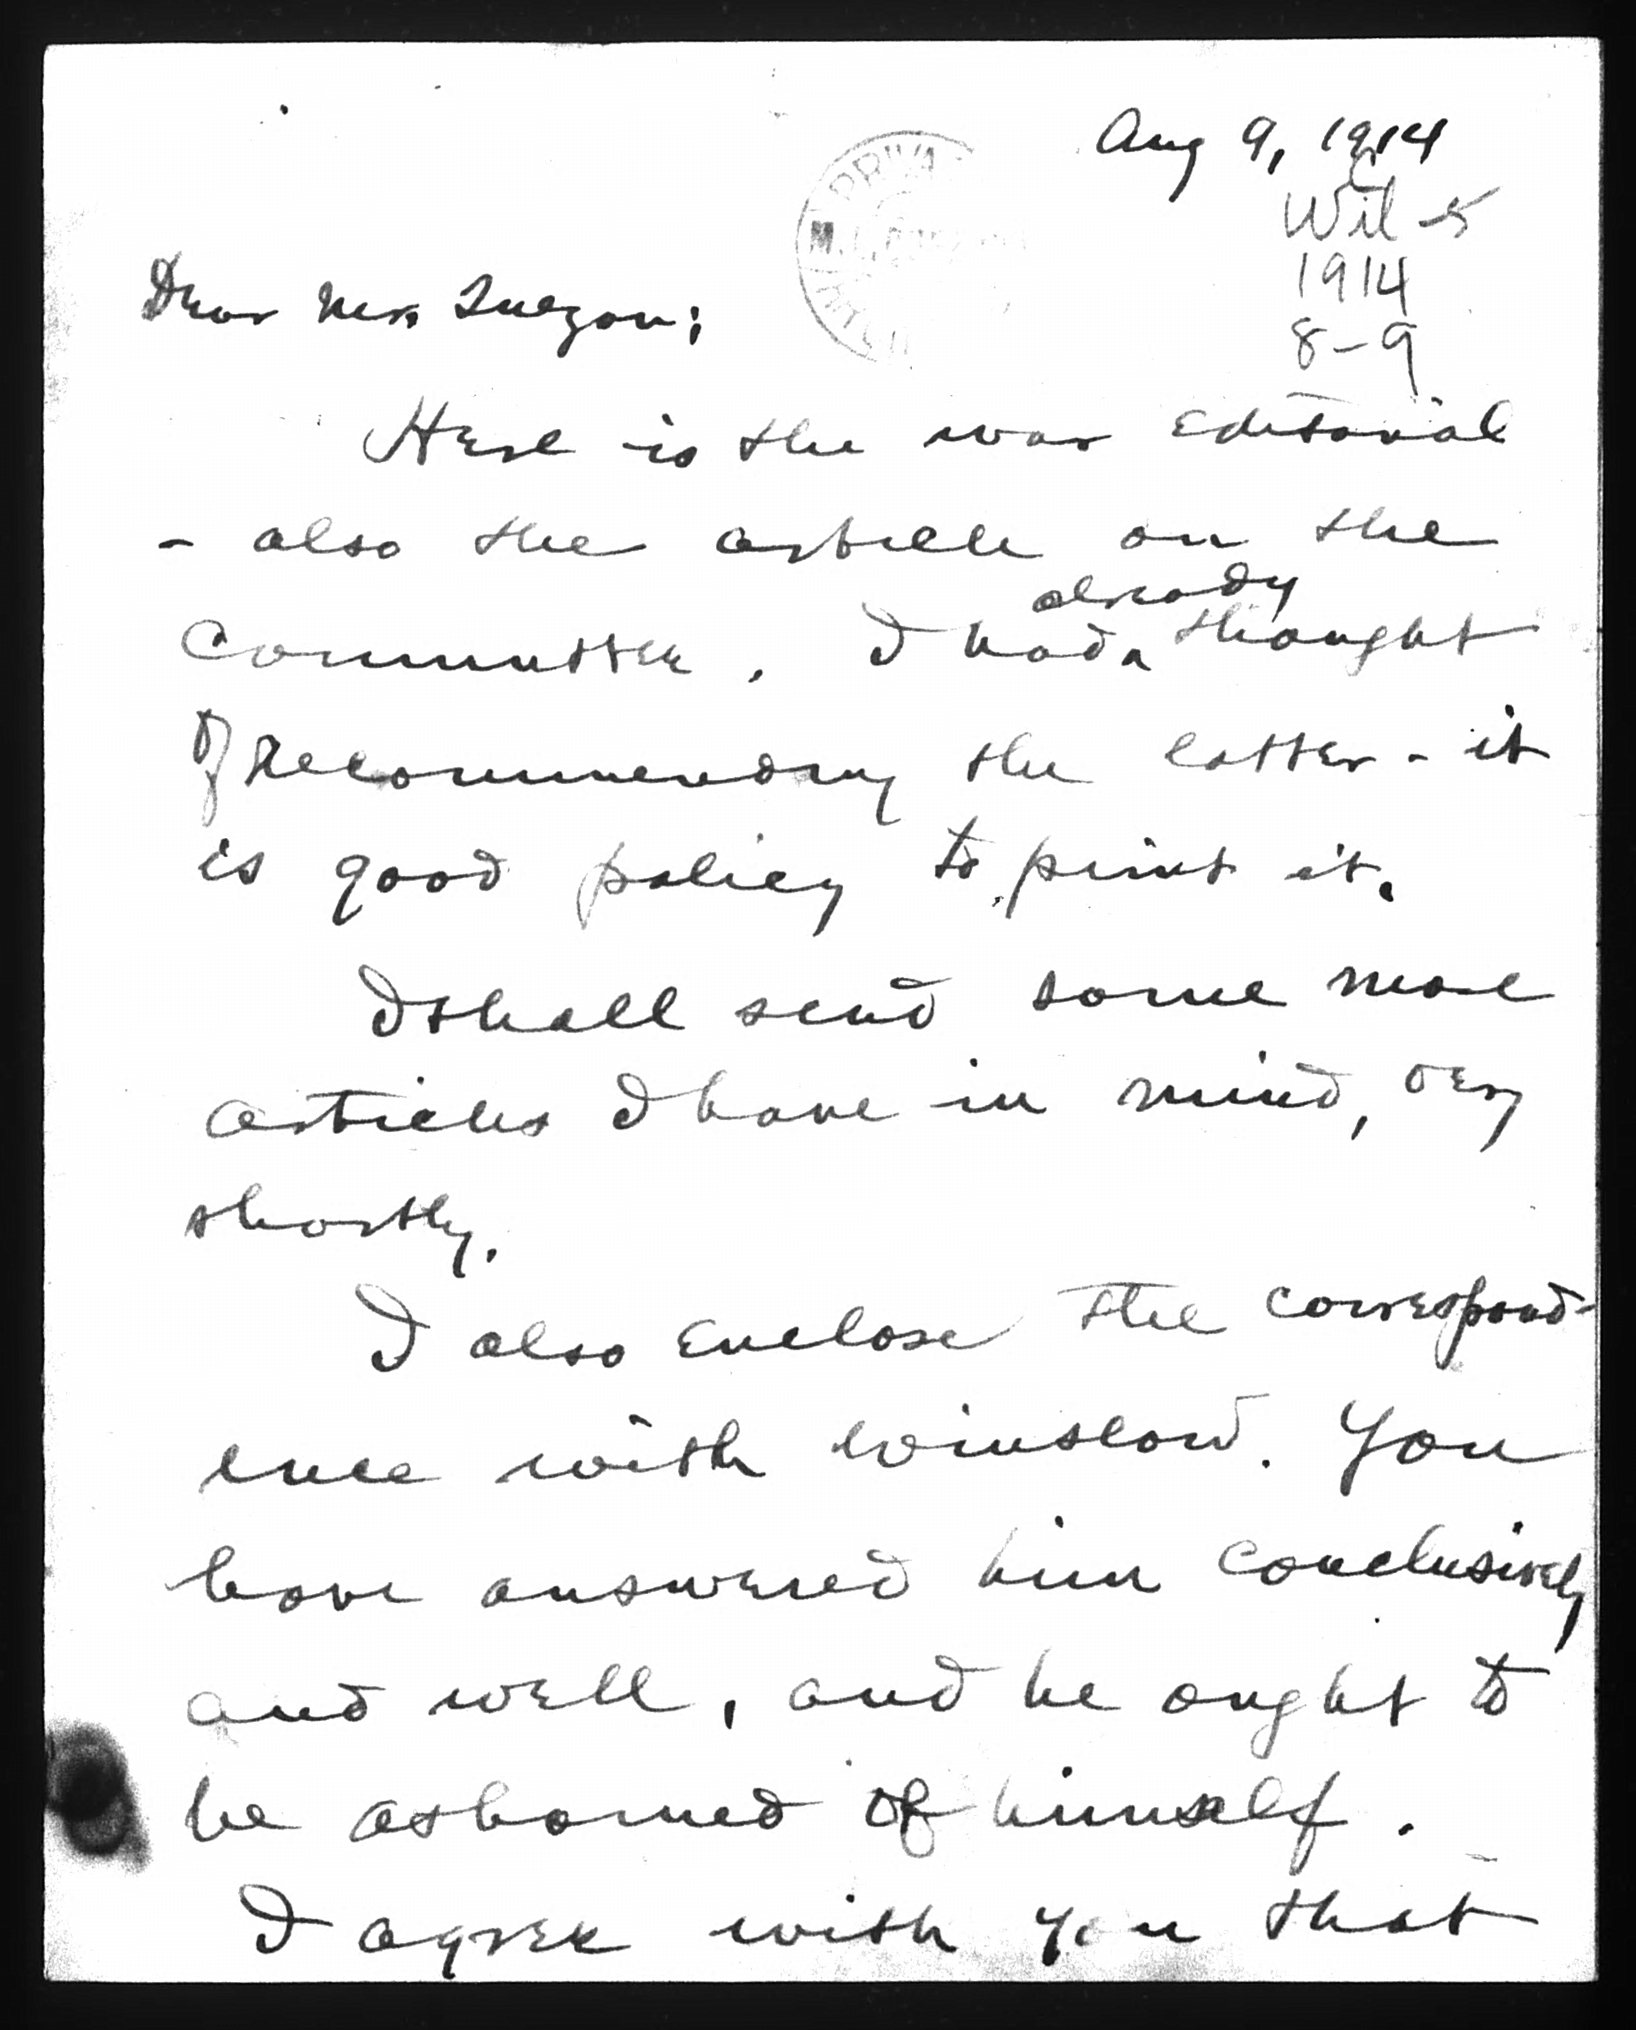 Aug 9, 1914
Wil-5
1914
8-9
PRIVA
M. L.
Dear Mr. Quezon:
Here is the war editorial
- also the article on the
already
Committee. I had ‸ thought
of recommending the latter - it
is good policy to print it.
I shall send some more
articles I have in mind, very
shortly.
I also enclose the correspond-
ence with Winslow. You
have answered him conclusively
and well, and he ought to
be ashamed of himself.
I agree with you that